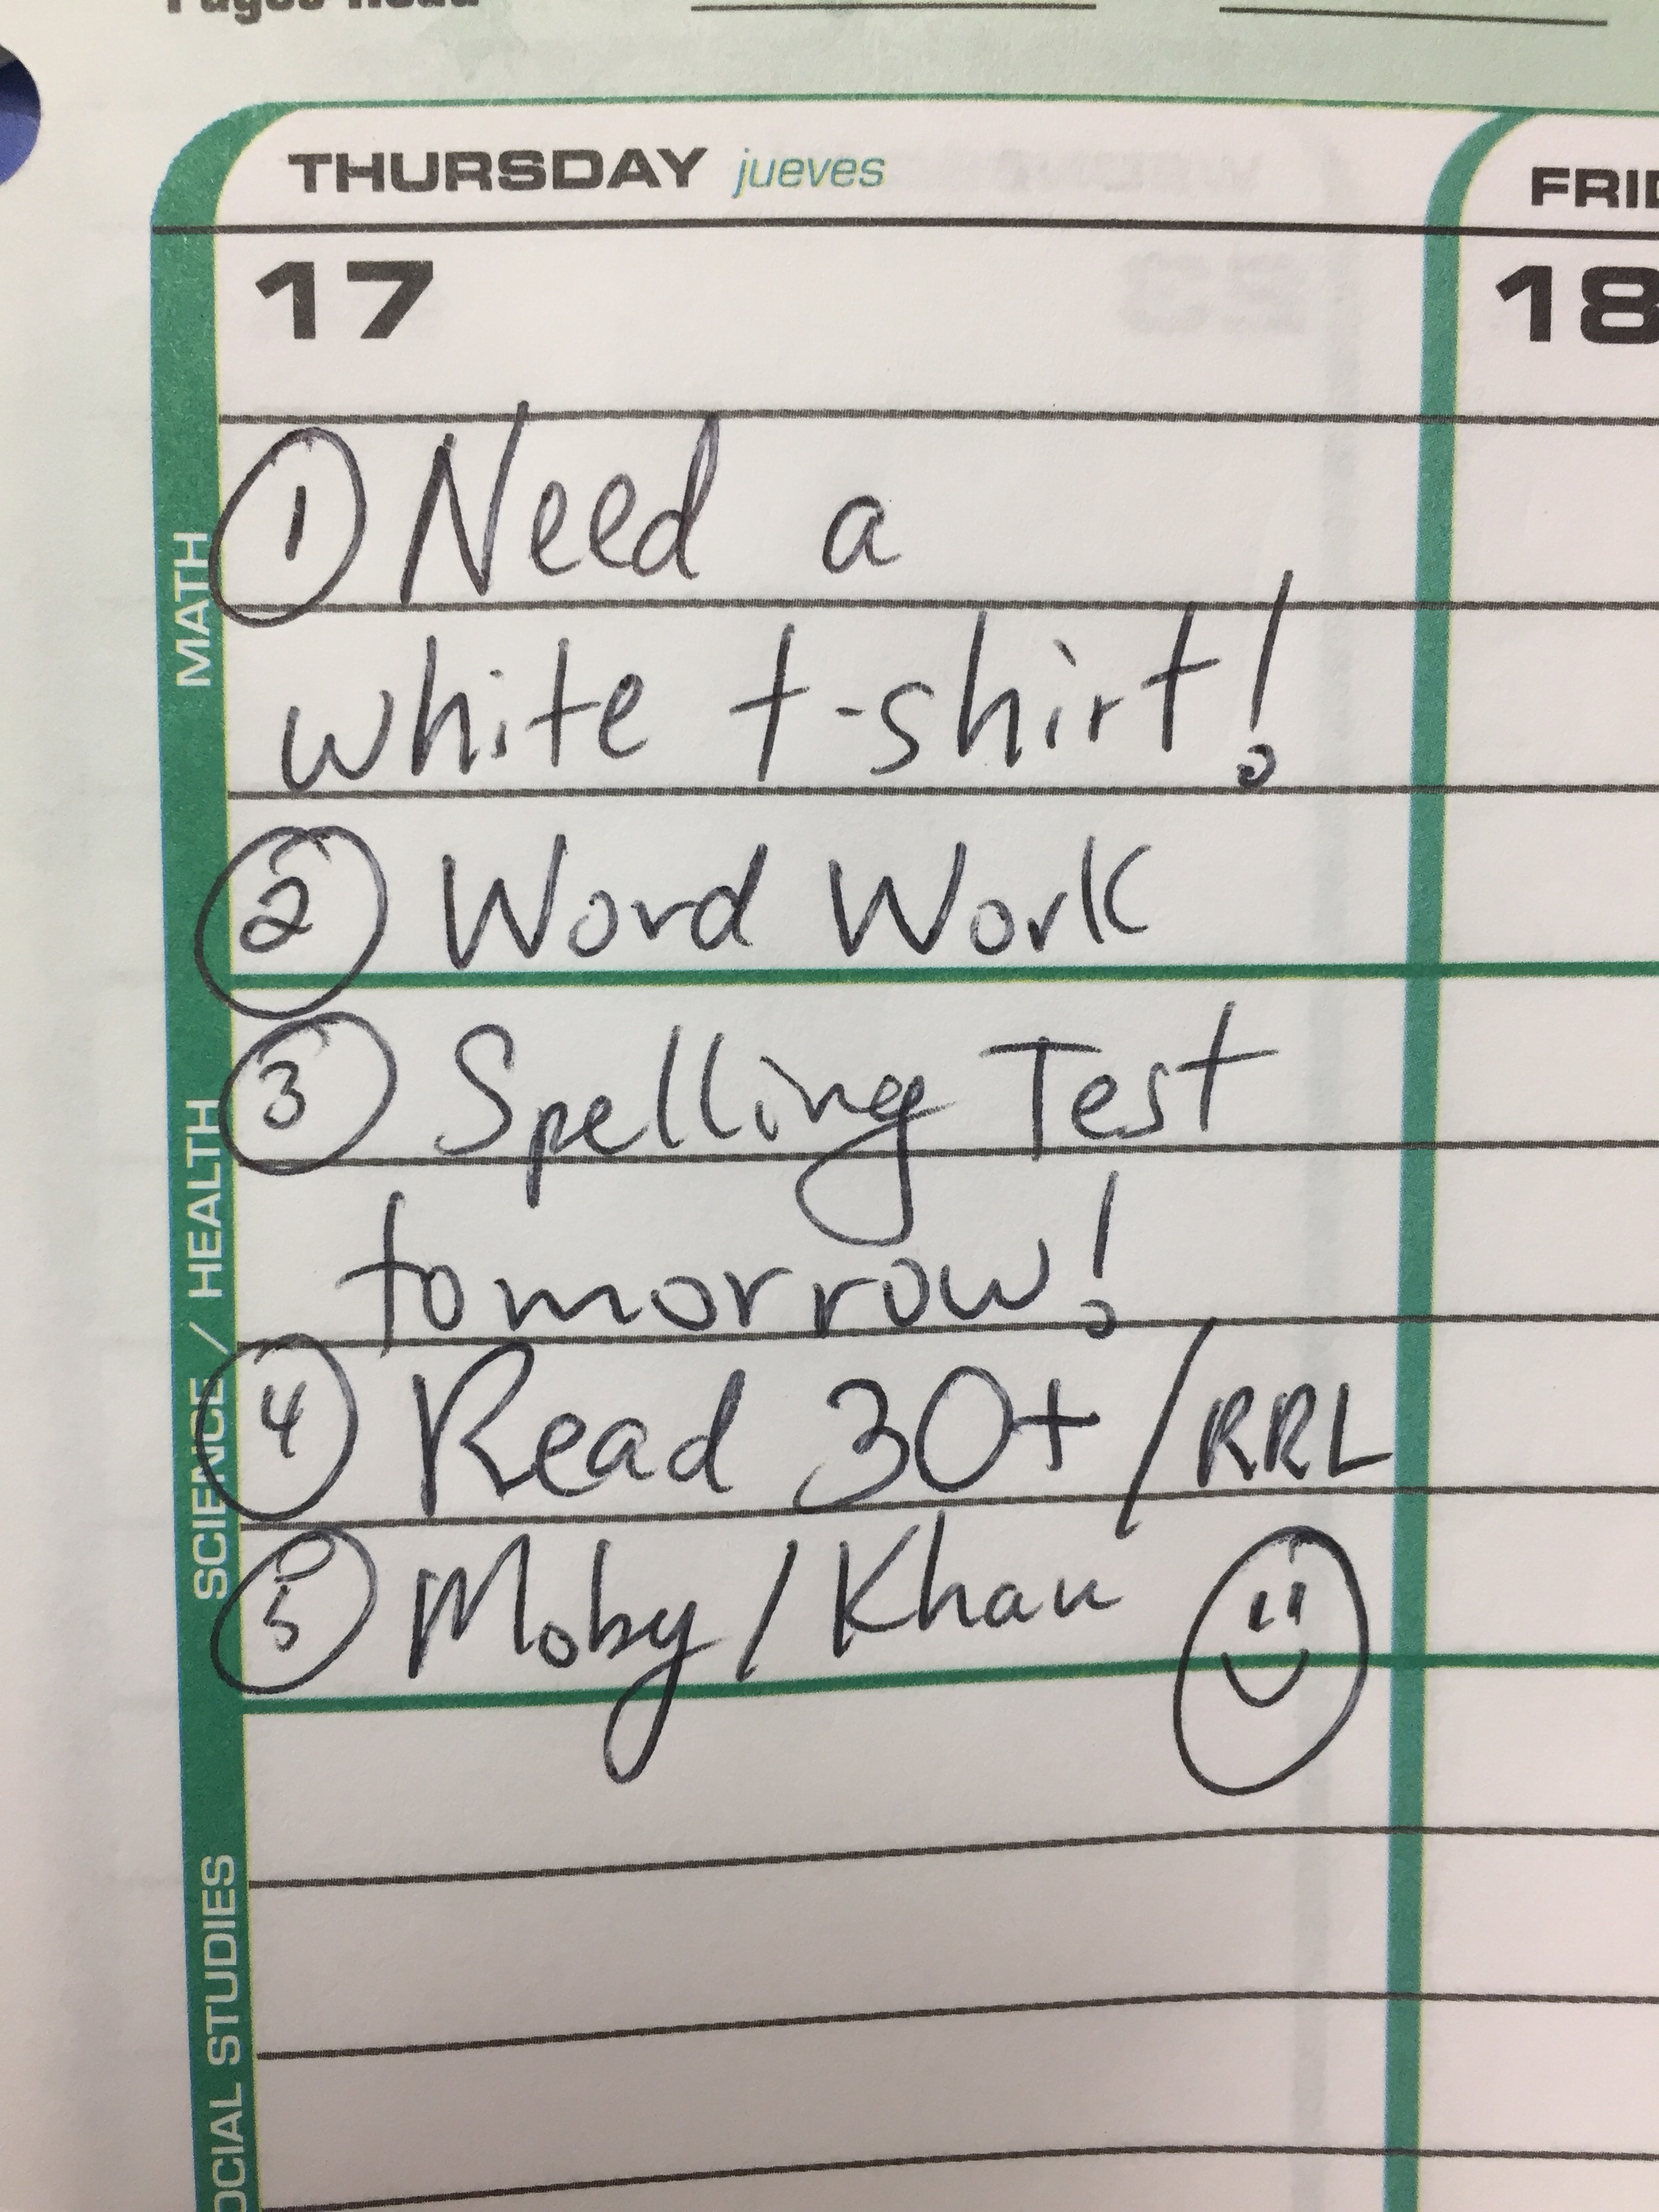 Pages Read
THURSDAY jueves
FRID
17
18
MATH
① Need a
white t-shirt!
② Word Work
SCIENCE / HEALTH
③ Spelling Test
tomorrow!
④ Read 30+/RRL
⑤ Moby/Khan
OCIAL STUDIES